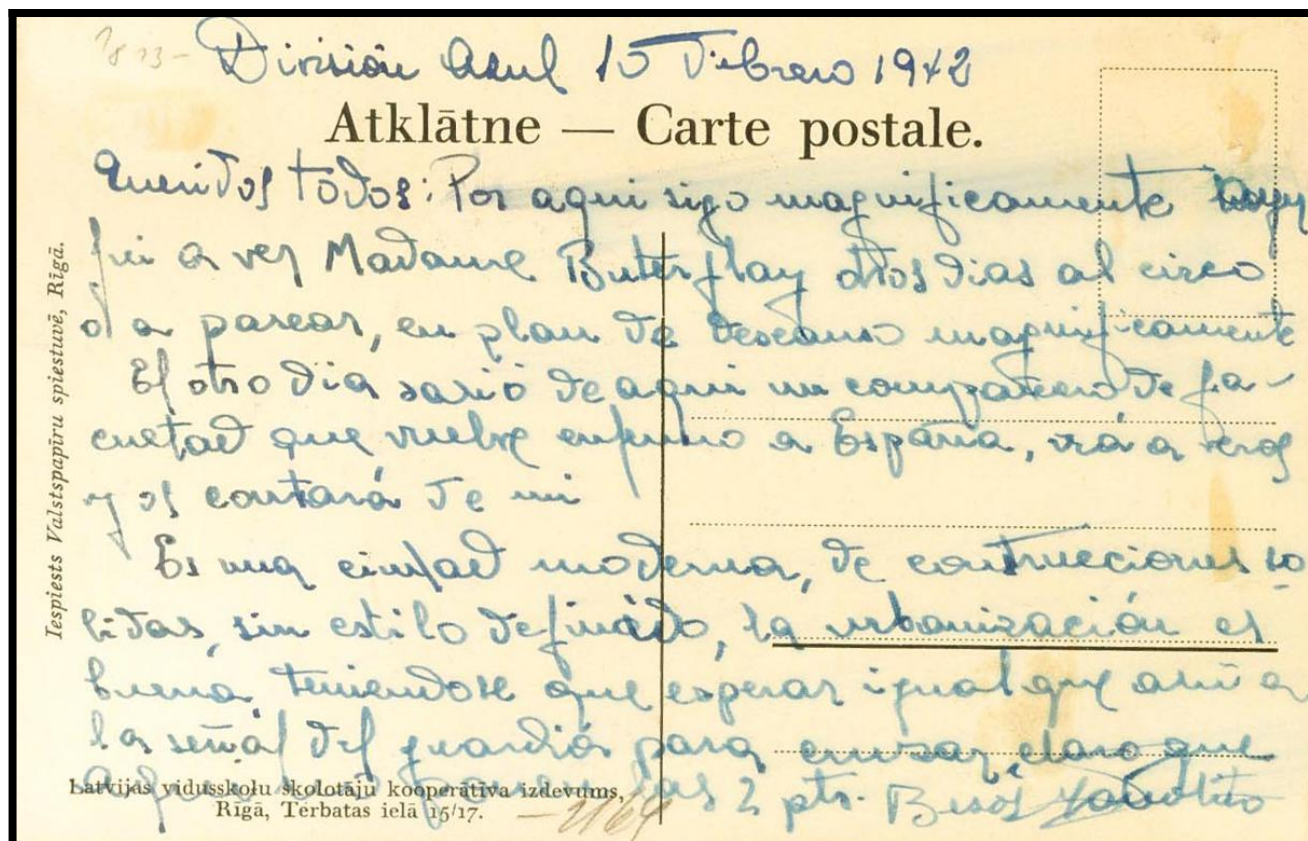 División Azul 15 Febrero 1942
Atklātne — Carte postale.
Queridos todos: Por aqui sigo magnificamente
fui a ver Madame Buterflay otros dias al circo
o a pasear, en plan de descanso magnificamente
El otro dia salió de aqui un compañero de fa-
cultad que vuelve enfermo a España, irá a veros
y os contará de mi
Es una ciudad moderna, de construcciones so
lidas, sin estilo definido, la urbanización es
buena, teniendose que esperar igual que ahi a
la señal del guardia para cruzar, claro que
aqui no ponen las 2 pts. Besos
Iespiests Valstspapīru spiestuvē, Rīgā.
Latvijas vidusskolu skolotāju kooperātīva izdevums,
Rīgā, Tērbatas ielā 15/17.